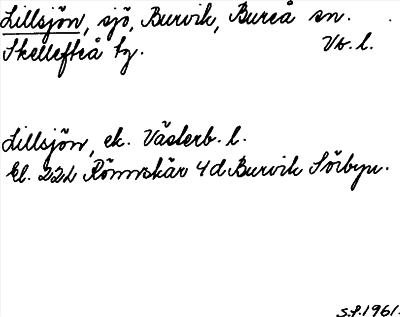 Lillsjön, sjö, Burvik, Bureå sn.
Skellefteå tg. Vb. l.
Lillsjön, ek. Västerb. l.
Bl. 22L Rönnskär 4d Burvik Sörbyn.
S.f. 1961.